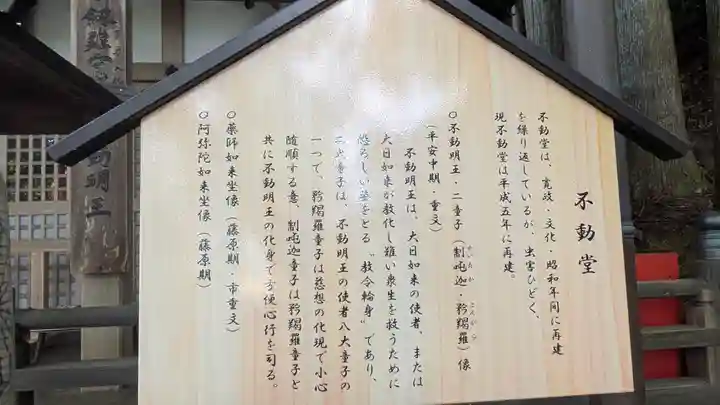 不動堂
不動堂は、寛政・文化・昭和年間に再建
を繰り返しているが、虫害ひどく、
現不動堂は平成五年に再建。
○不動明王・二童子（制吒迦・矜羯羅）像
せいたか こんがら
（平安中期・重文）
不動明王は、大日如来の使者、または
大日如来が教化し難い衆生を救うために
怒らしい姿をとる“教令輪身”であり、
二大童子は、不動明王の使者八大童子の
一つで、矜羯羅童子は慈悲の化現で小心
随順する意、制吒迦童子は矜羯羅童子と
共に不動明王の化身で方便心行を司る。
○薬師如来坐像（藤原期・市重文）
○阿弥陀如来坐像（藤原期）
動明王